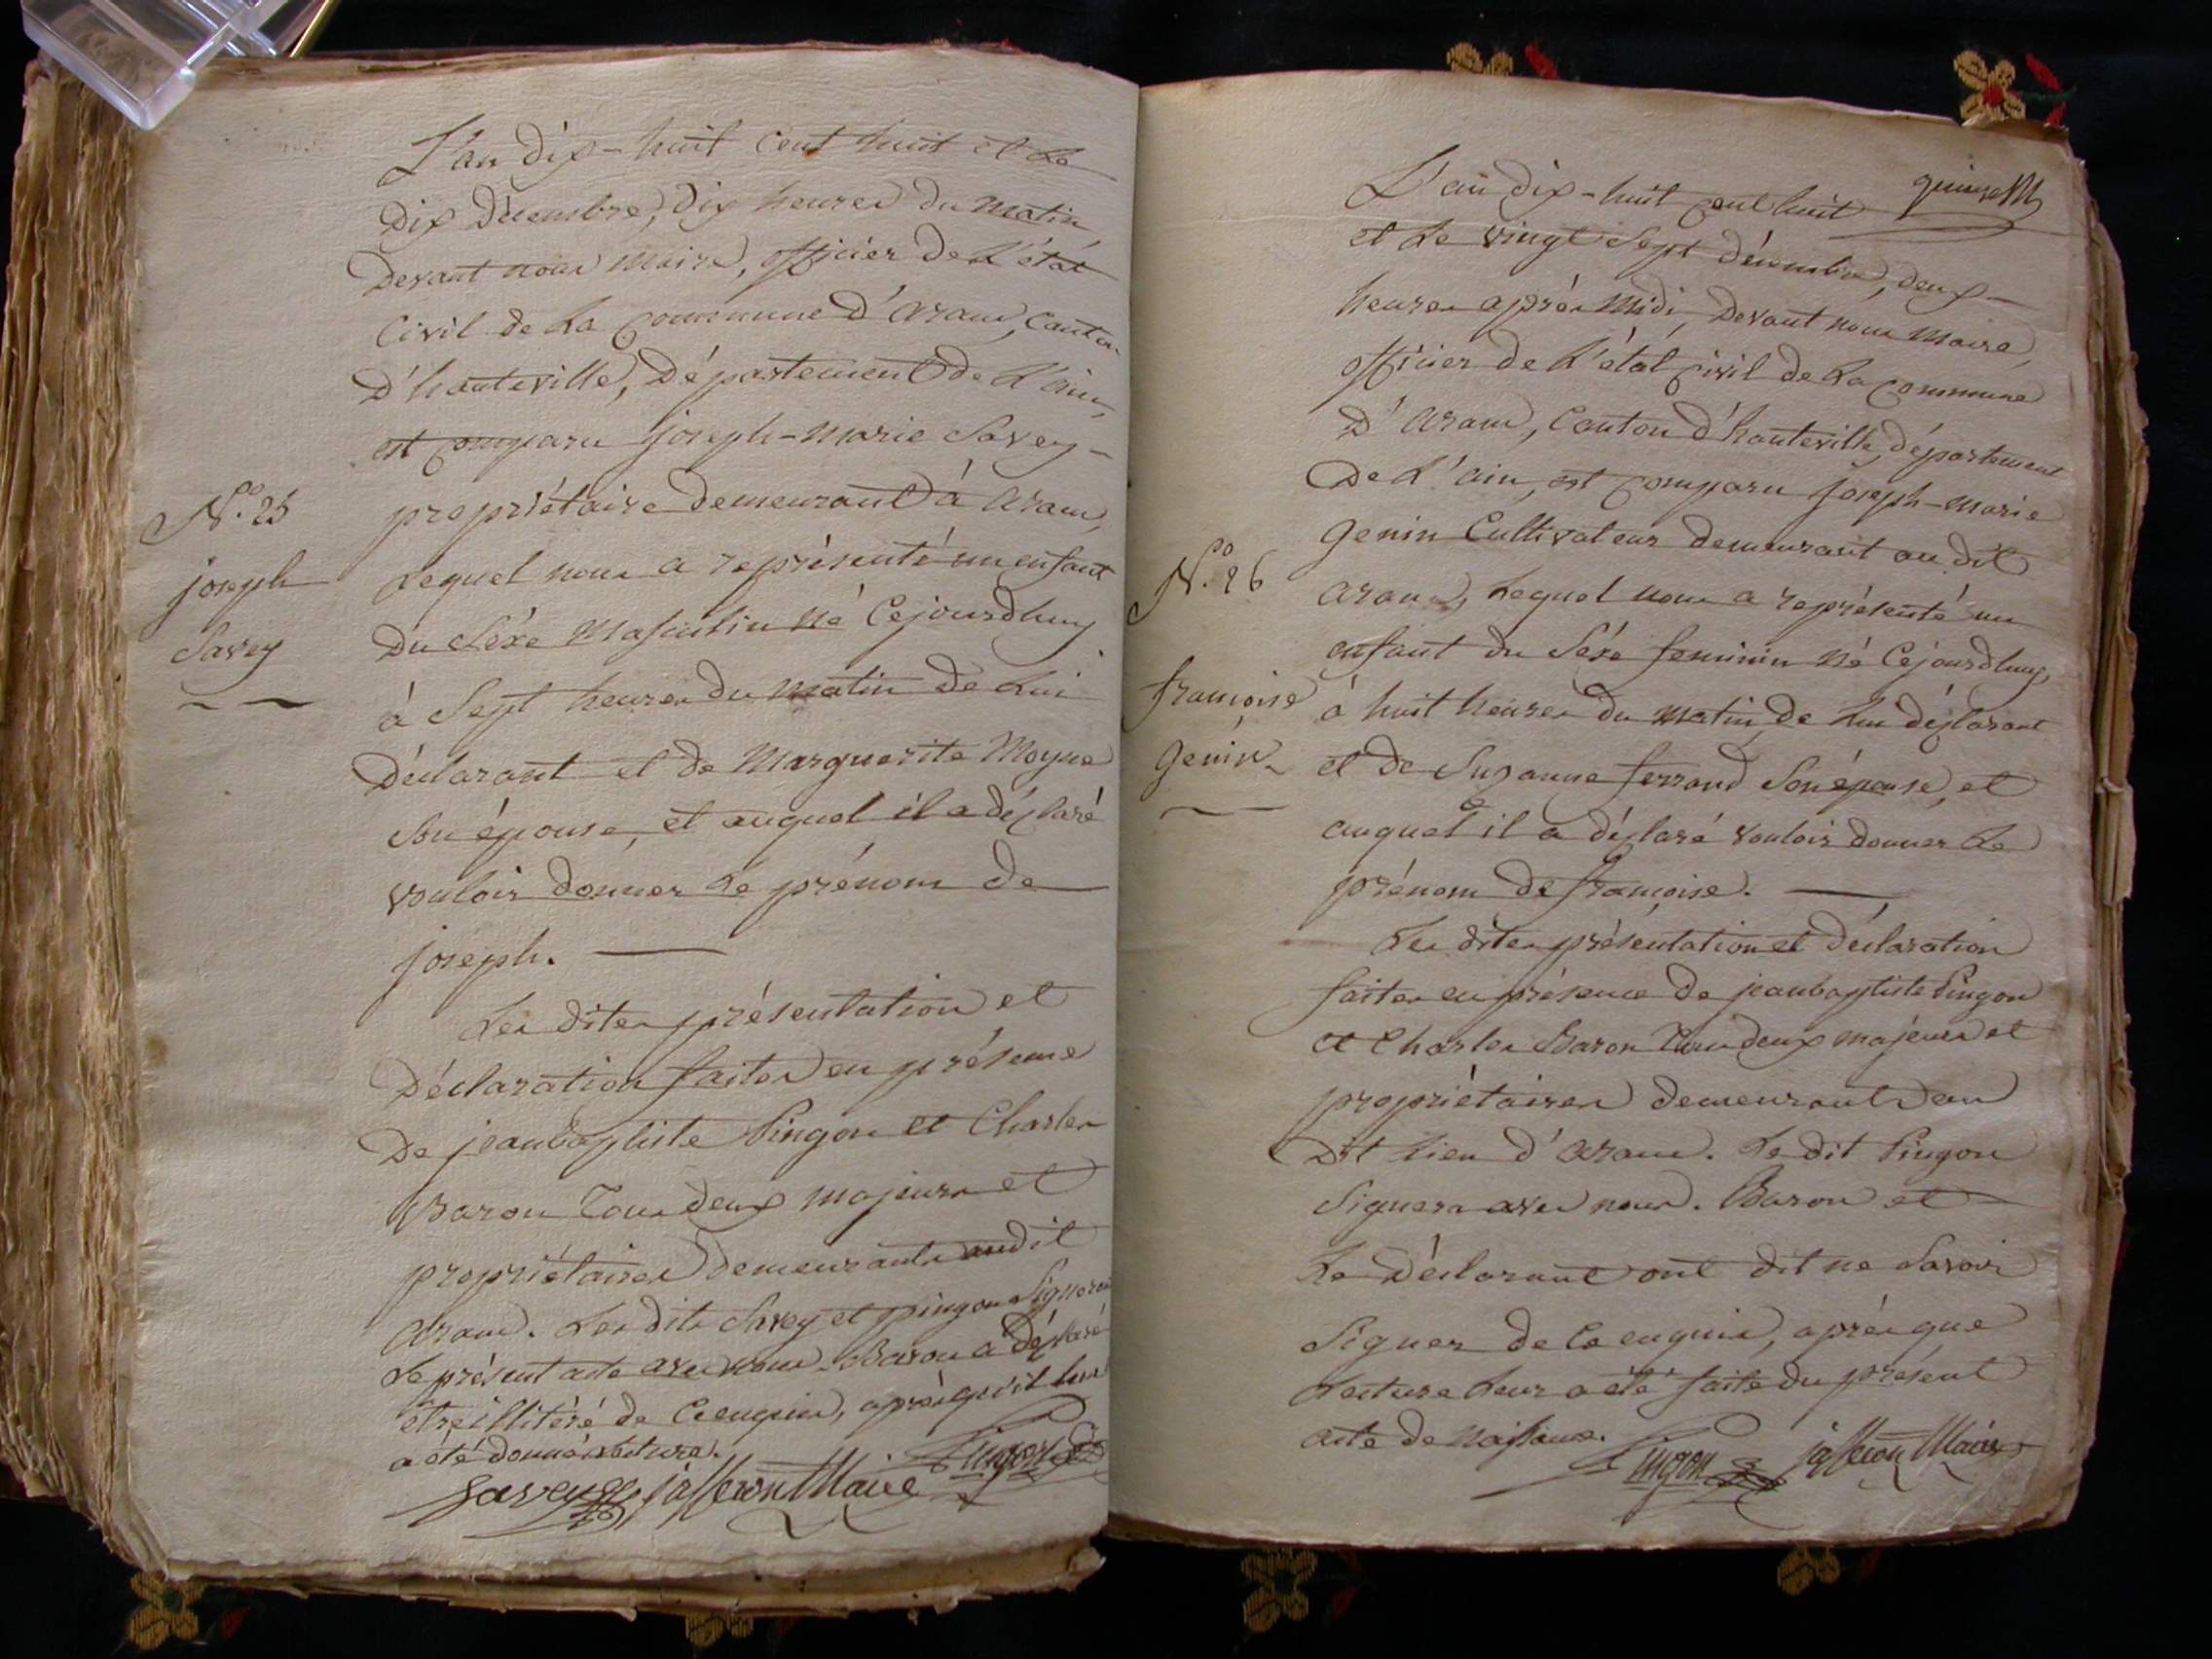 L'an dix-huit cent huit et le
dix décembre, dix heures du matin
devant nous maire, officier de l'état
civil de la commune d'aranc, canton
d'hauteville, département de l'ain,
est comparu joseph-marie Savey-
N.o 25
propriétaire demeurant à aranc,
joseph
lequel nous a représenté un enfant
Savey
du séxe masculin né cejourdhuy
à sept heures du matin de lui
déclarant et de Marguerite Moyne
son épouse, et auquel il a déclaré
vouloir donner le prénom de
joseph.
Les dites présentation et
déclaration faites en présence
de jeanbaptiste Pingon et Charles
Baron tous deux majeurs et
propriétaires demeurants audit
aranc. Les dits Savey et pingon signeront
le présent acte avec nous. Baron a déclaré
etre illitéré de ce enquis, après qu'il leur
a été donné lecture.
Savey jasseron Maire Pingon
L'an dix-huit cent huit
et le vingt sept décembre, deux
heures après midi, devant nous maire,
officier de l'état civil de la commune
d'aranc, canton d'hauteville, département
de l'ain, est comparu joseph-marie
genin cultivateur demeurant au dit
N.o 26
aranc, lequel nous a représenté un
enfant du séxe feminin né cejourdhuy,
françoise
à huit heures du matin, de lui déclarant
genin
et de Suzanne ferrand son épouse, et
auquel il a déclaré vouloir donner le
prénom de françoise.
Les dites présentation et déclaration
faites en présence de jeanbaptiste Pingon
et Charles Baron tous deux majeurs et
propriétaires demeurants au
dit lieu d'aranc. Le dit Pingon
signera avec nous. Baron et
le déclarant ont dit ne savoir
signer de ce enquis, après que
lecture leur a été faite du présent
acte de naissance.
Pingon jasseron Maire